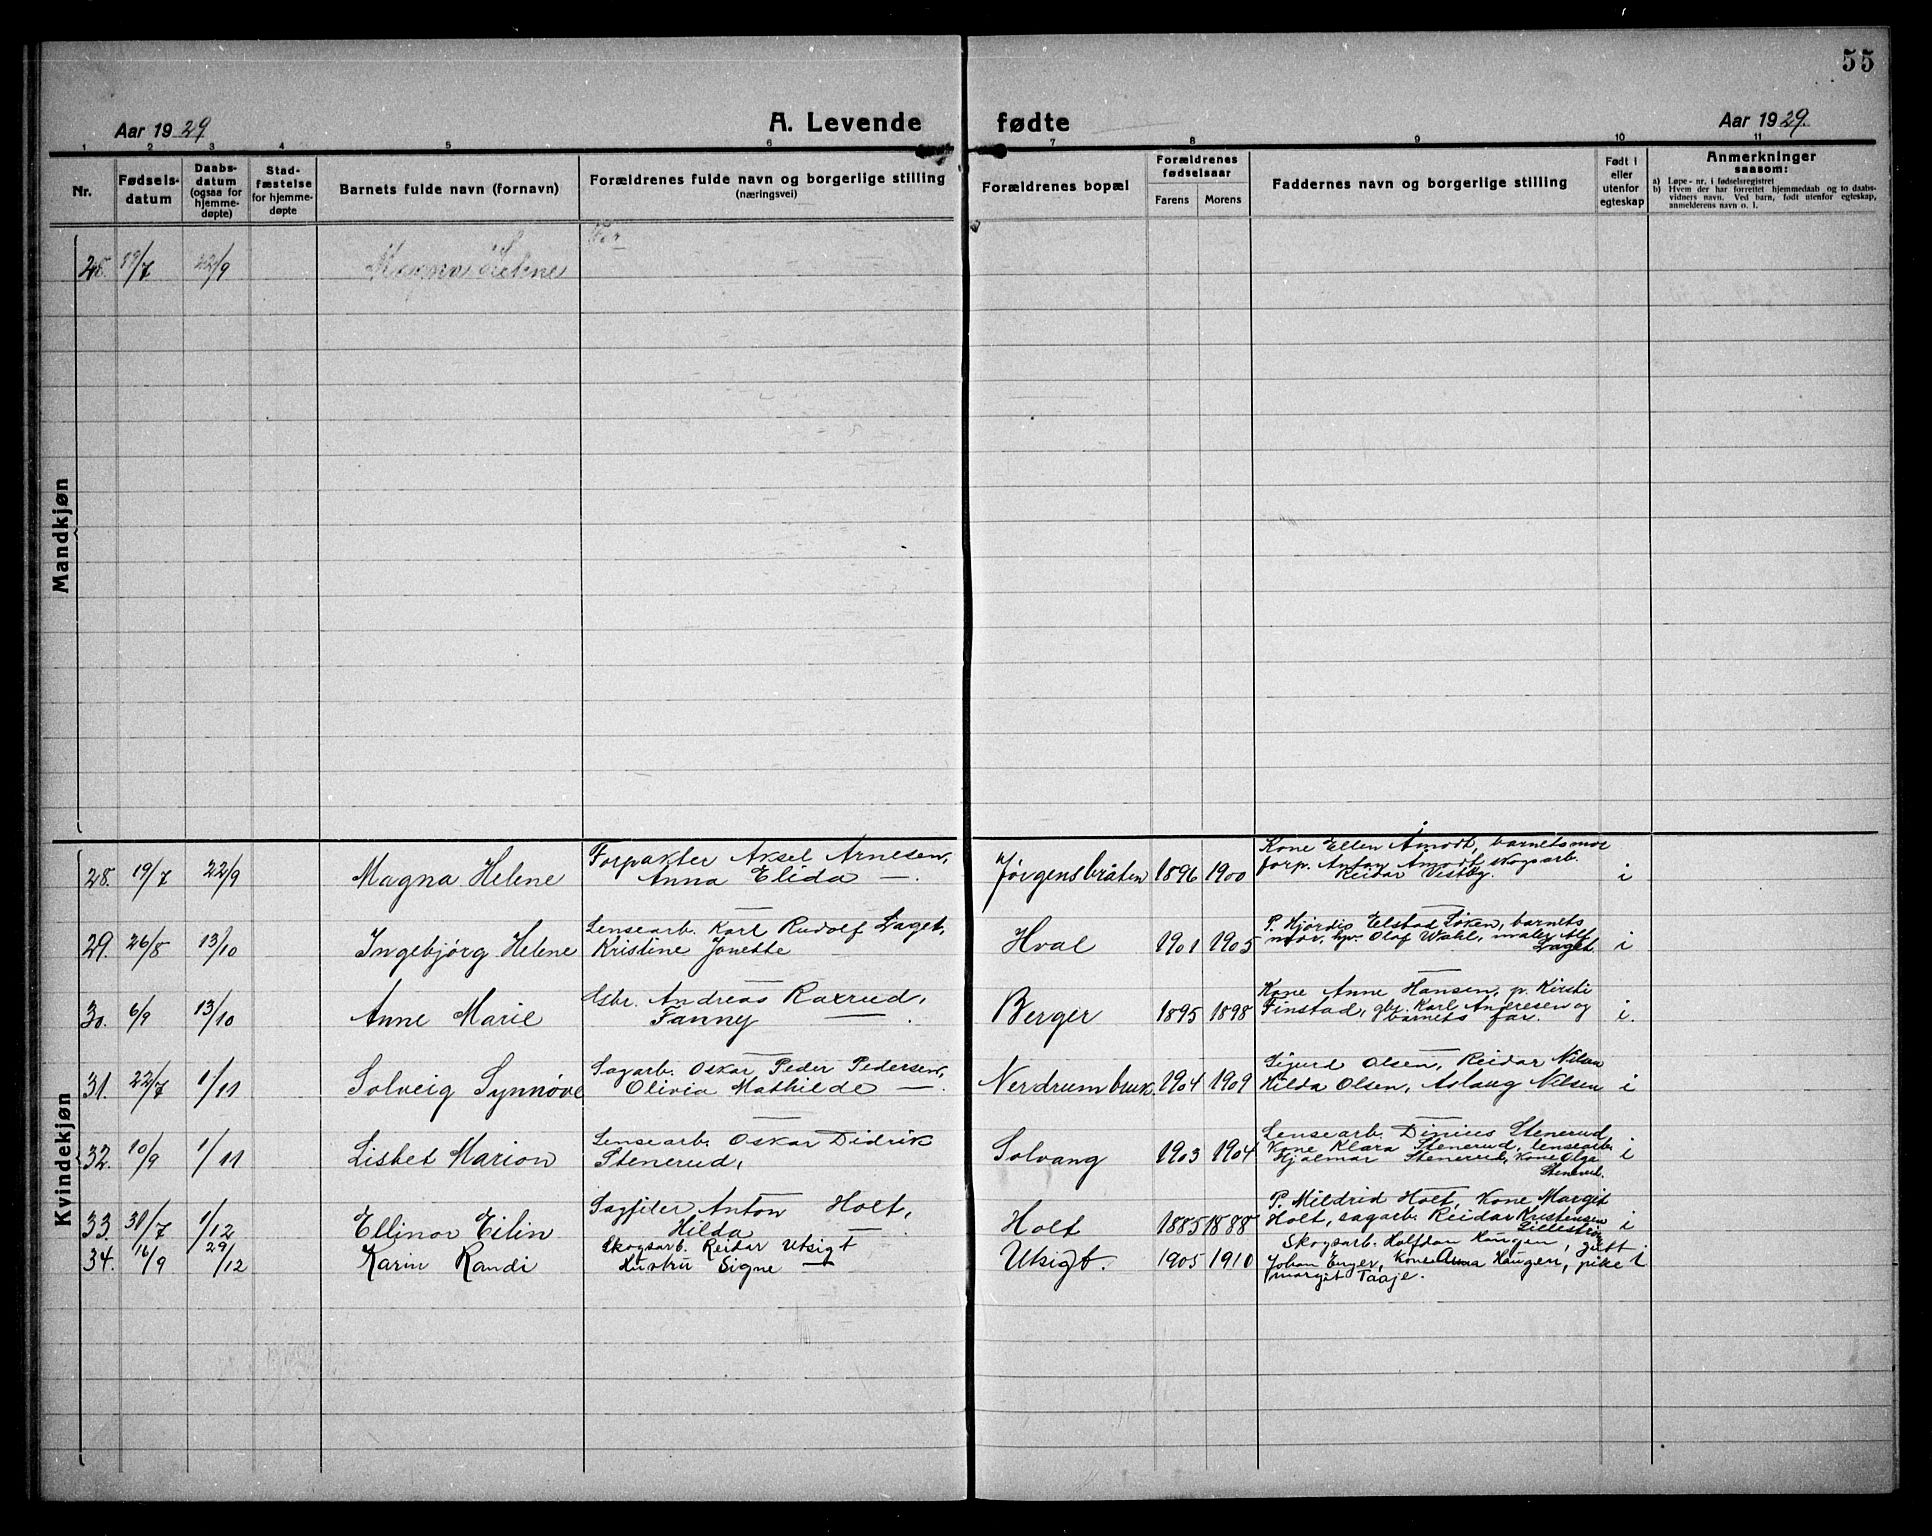 55
Aar 1929
A. Levende fødte
Aar 1929.
1 2 3 4 5 6 7 8 9 10 11
Nr.
Fødsels-
datum
Daabs-
datum
(ogsaa for
hjemme-
døpte)
Stad-
fæstelse
for hjemme-
døpte
Barnets fulde navn (fornavn)
Forældrenes fulde navn og borgerlige stilling
(næringsvei)
Forældrenes bopæl
Forældrenes
fødselsaar
Farens Morens
Faddernes navn og borgerlige stilling
Født i
eller
utenfor
egteskap
Anmerkninger
saasom:
a) Løpe-nr. i fødselsregistret
b) Hvem der har forrettet hjemmedaab og to daabs-
vidners navn. Ved barn, født utenfor egteskap,
anmelderens navn o. l.
Mandkjøn
For
28. 19/7 22/9 Magna Helene
Kvindekjøn
28. 19/7 22/9 Magna Helene
Forpakter Aksel Arnesen,
Anna Elida —.
Jørgensbråten 1896 1900
Kone Ellen Åmodt, barnets mor
forp. Anton Åmodt, skogsarb.
Reidar Vestby.
i
29. 26/8 13/10 Ingebjórg Helene
Lensearb. Karl Rudolf Laget,
Kristine Jonette —
Hval 1901 1905
P. Hjórdis Elstad Løken, barnets
mor, Olaf Wahl, maler Alf
Laget.
i
30. 6/9 13/10 Anne Marie
Gbr. Andreas Raxrud,
Fanny —.
Berger 1895 1898
Kone Anne Hansen, p. Kirsti
Finstad, gbr. Karl Andresen og
barnets far.
i.
31. 22/7 1/11 Solveig Synnøve
Sagarb. Oskar Peder Pedersen,
Olivia Mathilde —.
Nerdrumbruk. 1904 1909
Sigurd Olsen, Reidar Nilsen
Hilda Olsen, Aslaug Nilsen
i
32. 10/9 1/11 Lisbet Marion
Lensearb. Oskar Didrik
Stenerud,
Solvang 1903 1904
Lensearb. Dinius Stenerud
Kone Klara Stenerud, lensearb.
Hjalmar Stenerud, Kone Olga
Stenerud.
i
33. 31/7 1/12 Ellinor Eilin
Sagfiler Anton Holt,
Hilda —.
Holt 1885 1888
P. Mildrid Holt, Kone Margit
Holt, sagarb. Reidar Kristensen
Lillestrøm
i
34. 16/9 29/12 Karin Randi
Skogsarb. Reidar Utsigt
Hustru Signe —
Utsigt. 1905 1910
Skogsarb. Halfdan Haugen, gutt
Johan Enger, Kone Anna Haugen, pike
Margit Taaje.
i